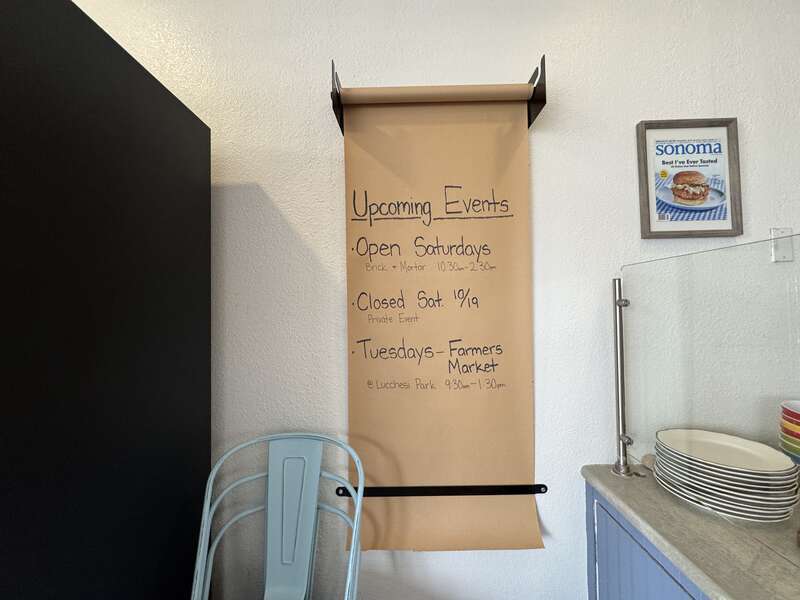 Upcoming Events
· Open Saturdays
Brick + Mortar 10:30am-2:30pm
· Closed Sat. 10/19
Private Event
· Tuesdays - Farmers
Market
@ Lucchesi Park 9:30am-1:30pm
sonoma
Best I've Ever Tasted